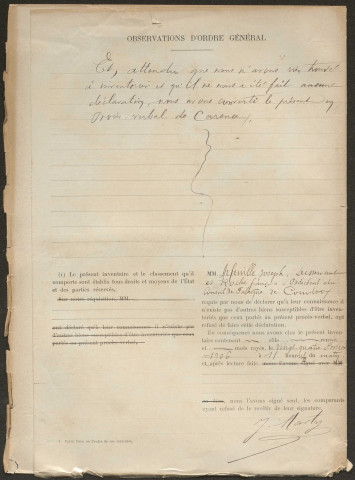 OBSERVATIONS D'ORDRE GÉNÉRAL
Et, attendu que nous n'avons rien trouvé
à inventorier et qu'il ne nous a été fait aucune
déclaration, nous avons converti le présent en
Procès verbal de Carence
(1) Le présent inventaire et le classement qu'il
comporte sont établis tous droits et moyens de l'État
et des parties réservés.
Sur notre réquisition, MM
ont déclaré qu'à leur connaissance il n'existe pas
d'autres biens susceptibles d'être inventoriés que ceux
portés au présent procès-verbal.
MM. Joseph, desservant
et François Président du
Conseil de Fabrique de
requis par nous de déclarer qu'à leur connaissance il
n'existe pas d'autres biens susceptibles d'être inven-
toriés que ceux portés au présent procès-verbal, ont
refusé de faire cette déclaration.
En conséquence nous avons clos le présent inven-
taire contenant rôle
et mots rayés, le vingt quatre
1906 à 11 heures du matin
et, après lecture faite,
nous l'avons signé seul, les comparants
ayant refusé de le revêtir de leur signature.